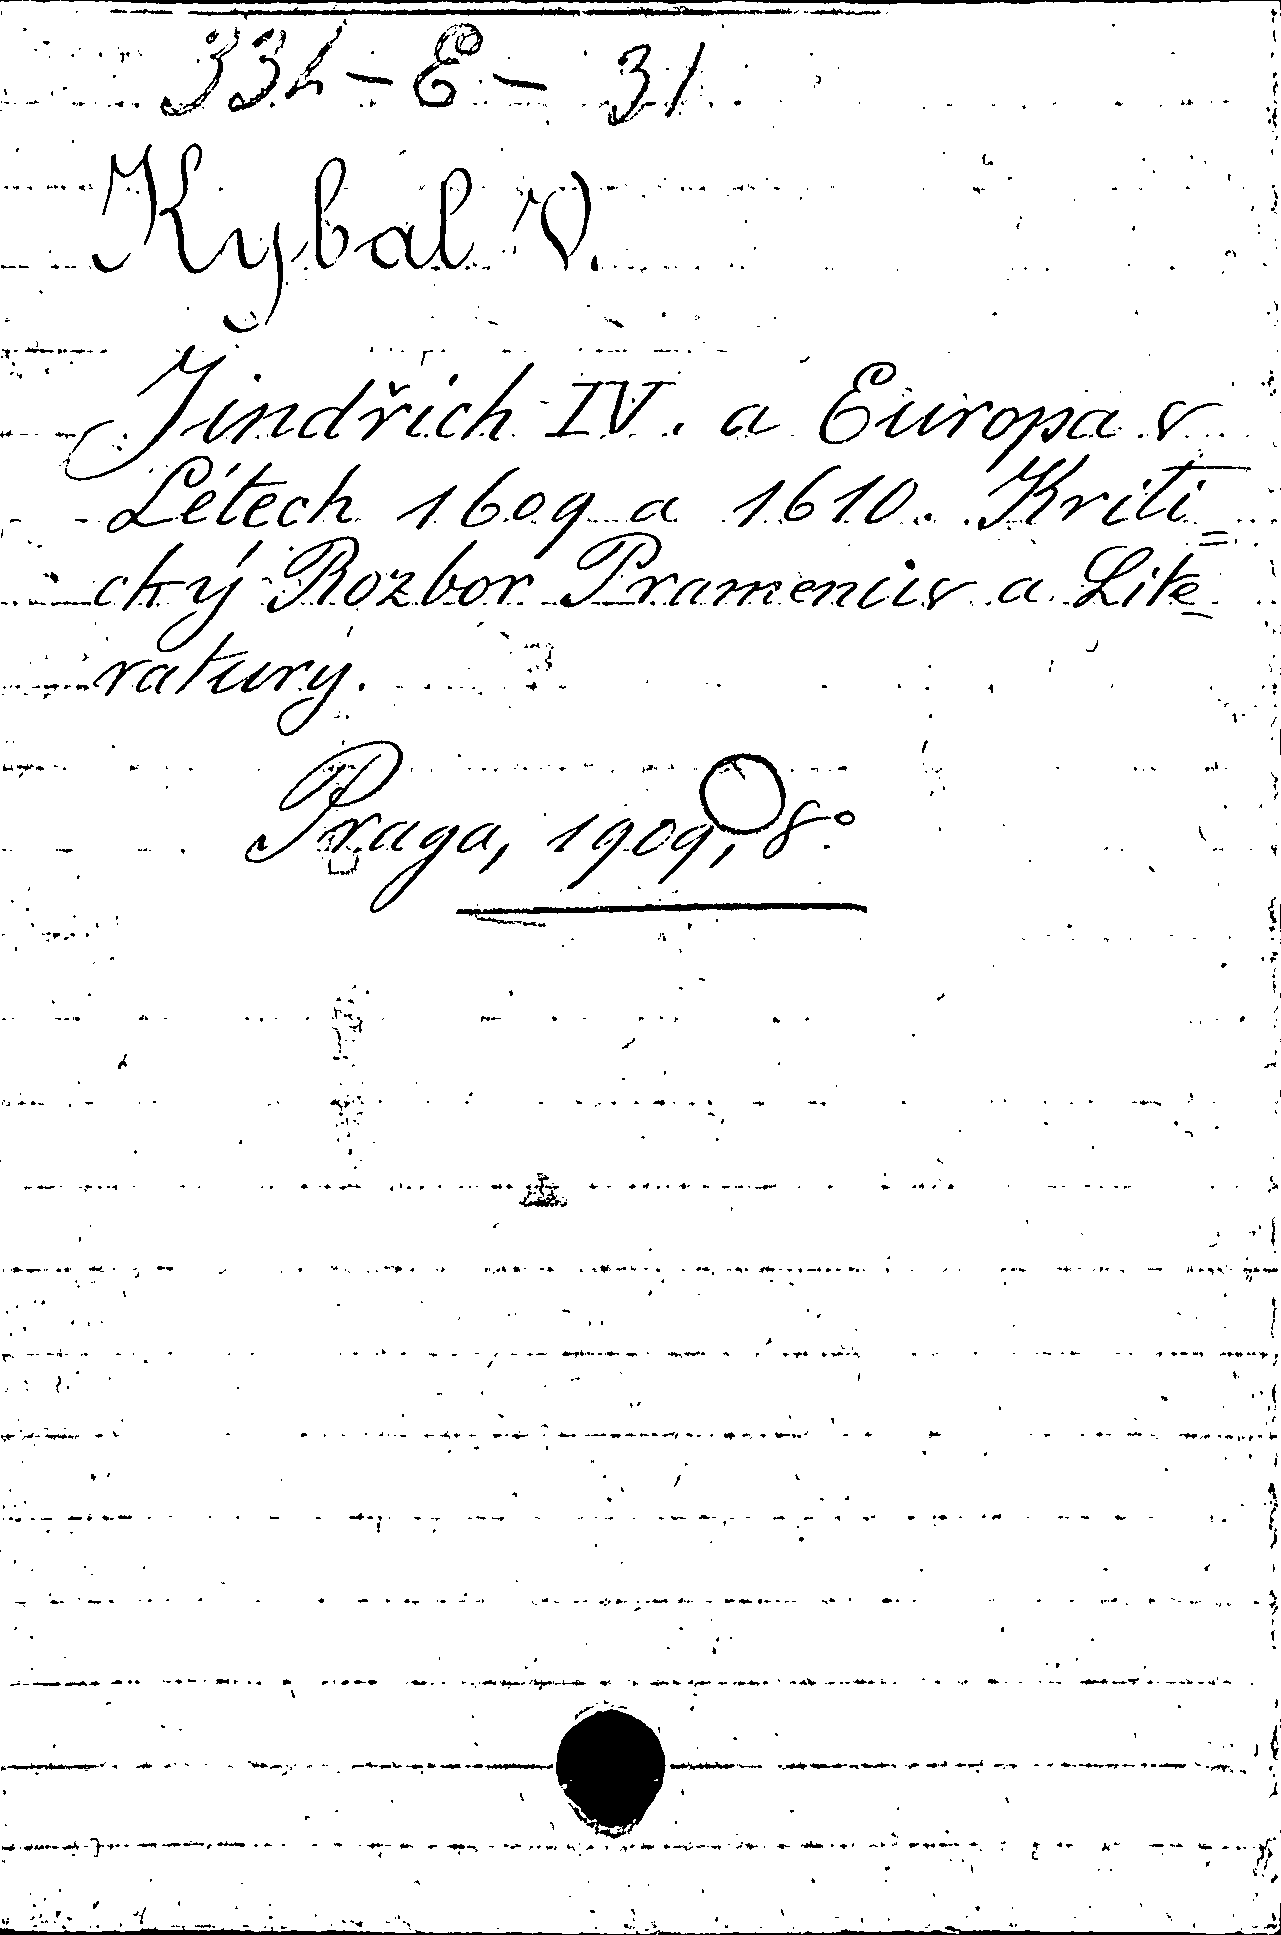 334-E-31
Kybal V.
Jindřich IV. a Europa v
Létech 1609 a 1610. Kriti=
cký Rozbor Prameniuv a Lite=
ratury.
Praga, 1909, 8º